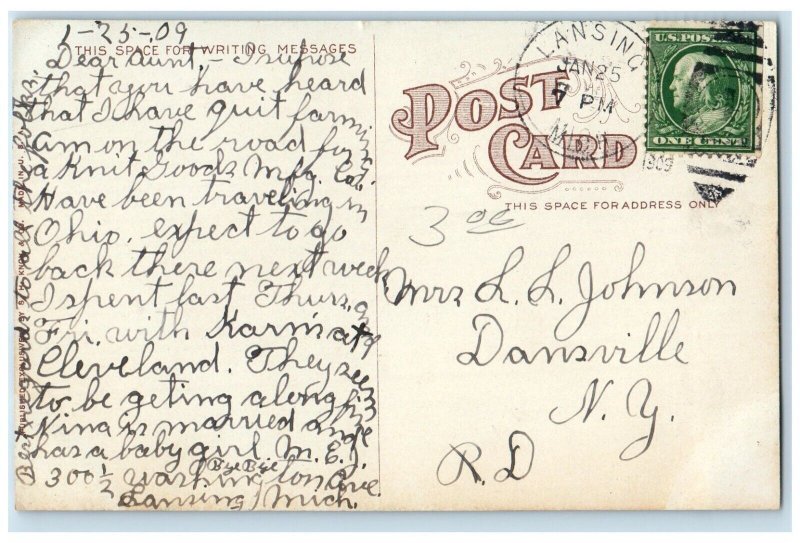 1-25-09
THIS SPACE FOR WRITING MESSAGES
Dear aunt,- I supose
that you have heard
that I have quit farming
am on the road for
a Knit Goods Mfg. Co.
Have been traveling in
Ohio, expect to go
back there next week
I spent last Thurs, and
Fri. with Karm at
Cleveland. They seem
to be geting along fine
Nina is married and
has a baby girl. M. E. J.
Bye Bye
300 1/2 Washington Ave.
Lansing, Mich.
Best regards to all the folks.
POST
CARD
THIS SPACE FOR ADDRESS ONLY
LANSING
JAN 25
7 PM
MICH.
1909
U.S. POSTAGE
ONE CENT
3 00
Mrs L. L. Johnson
Dansville
N. Y.
R. D